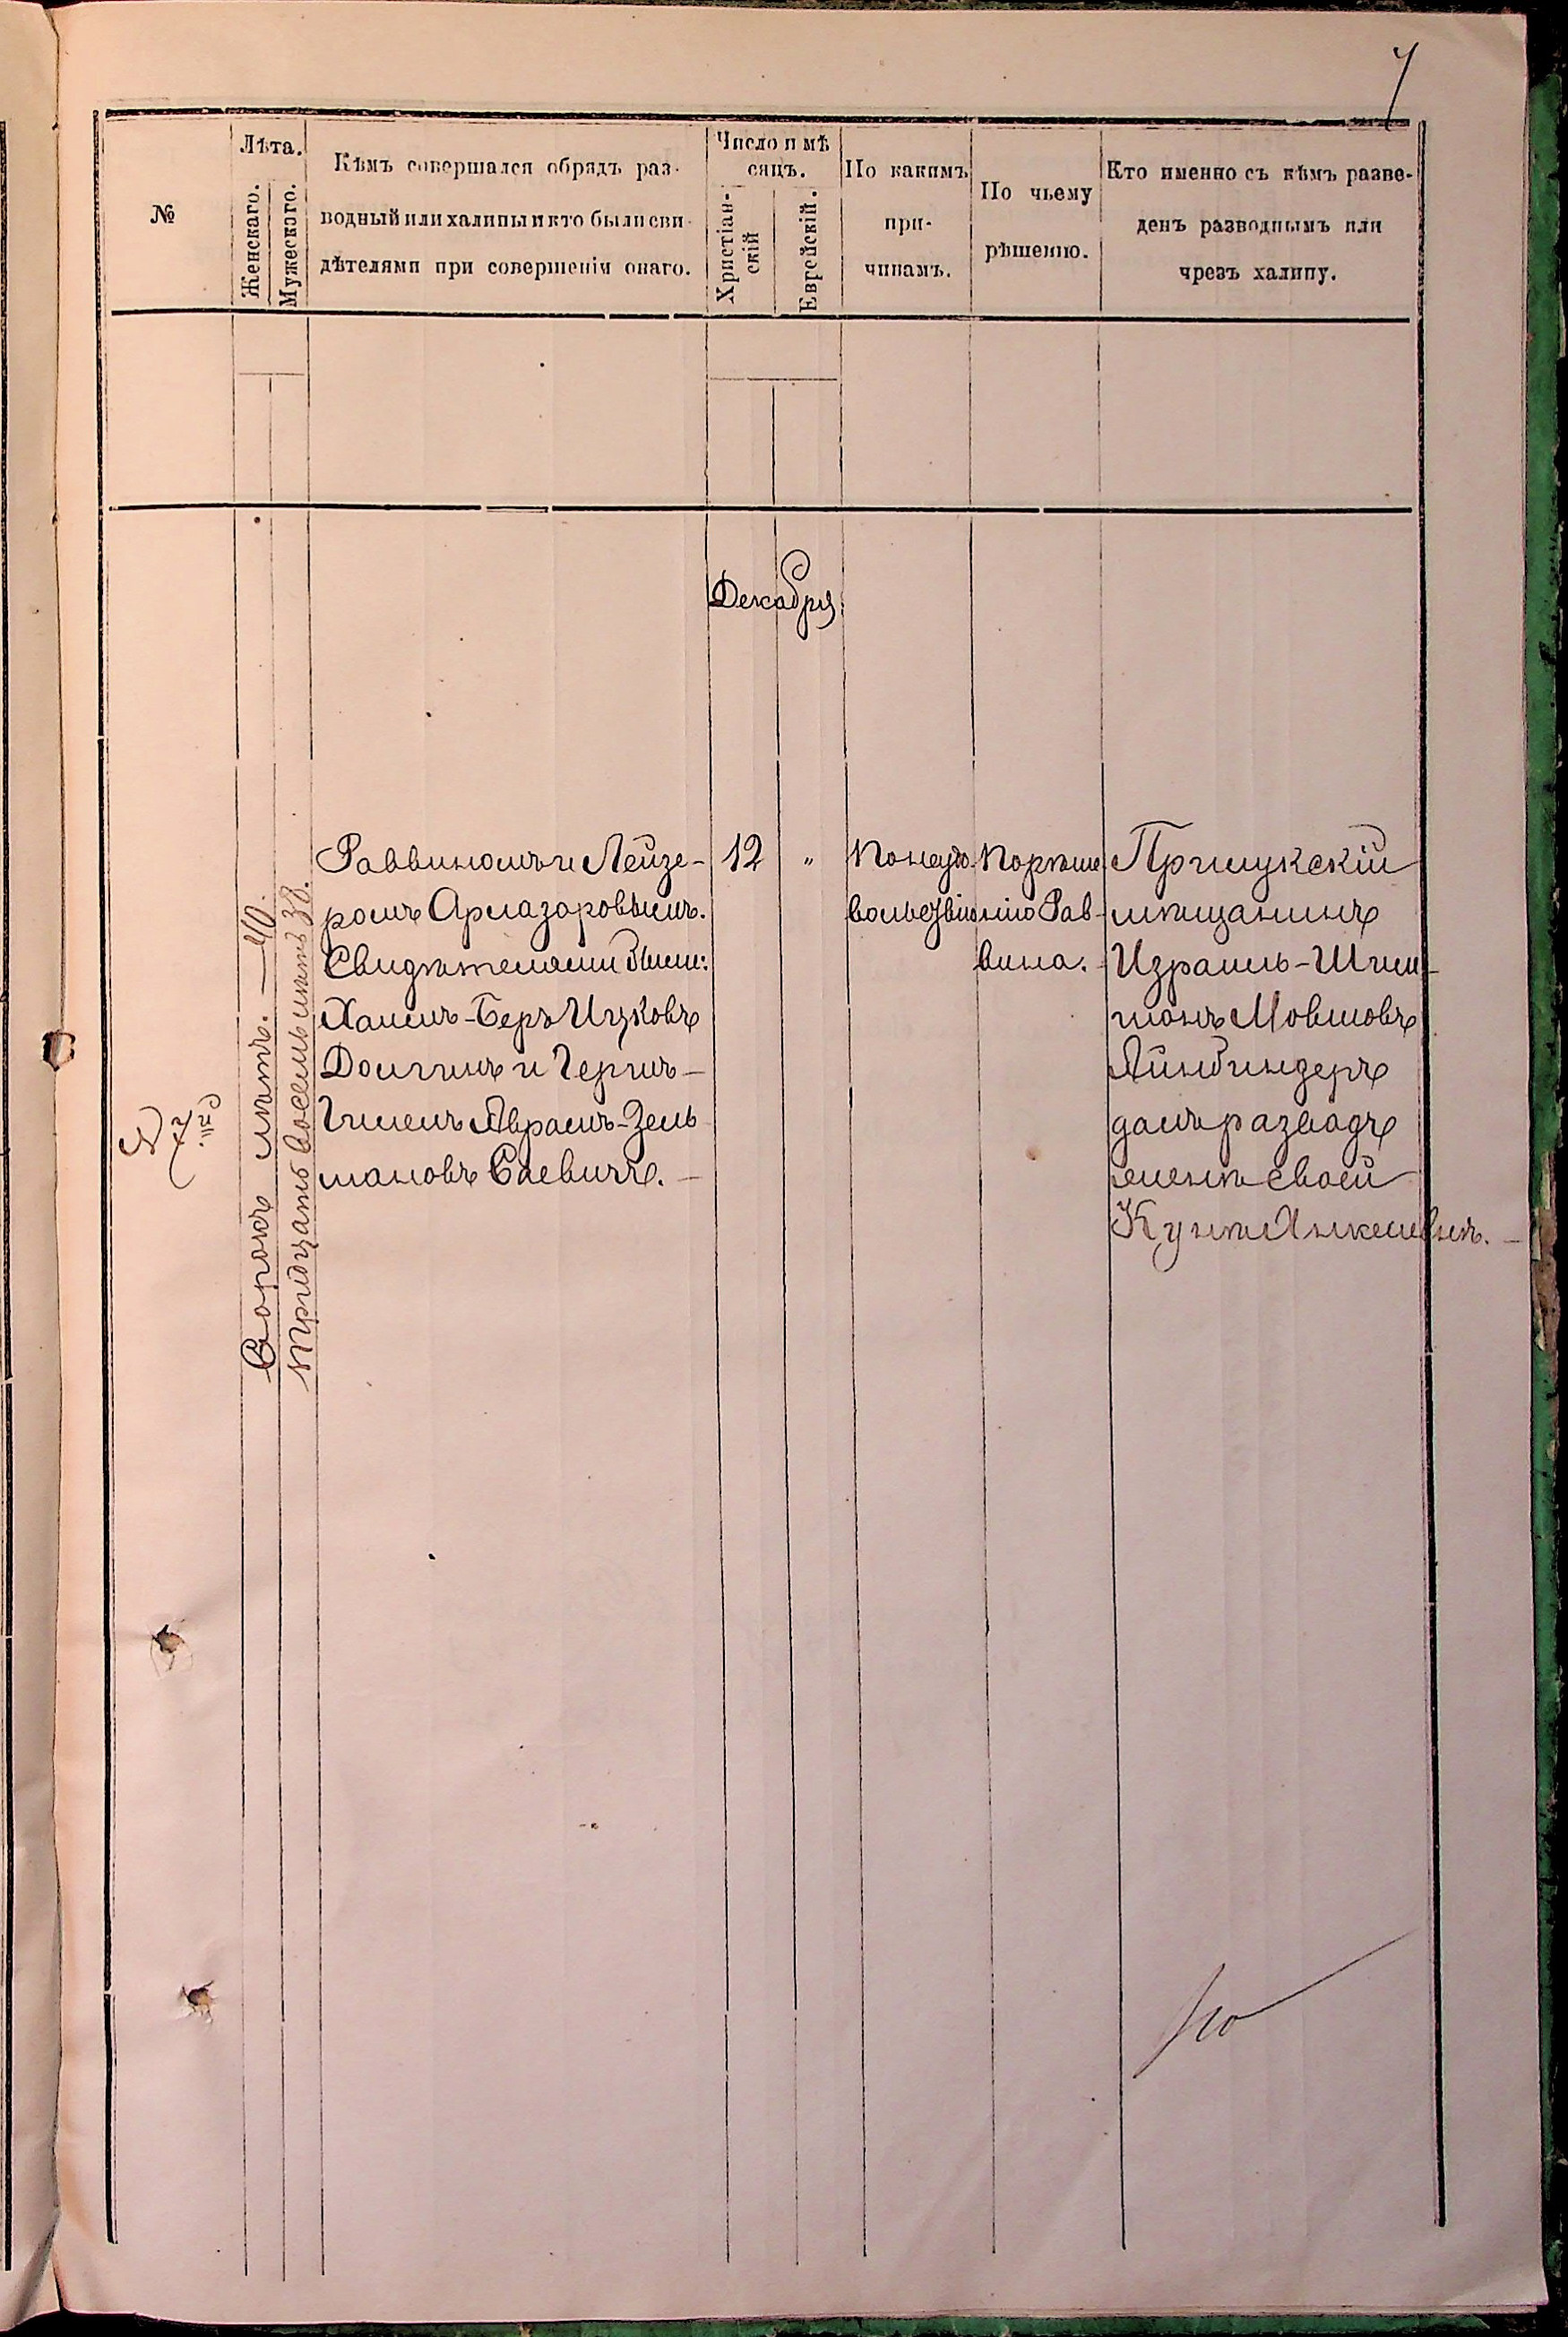 7
№
Лѣта.
Женскаго.
Мужескаго.
Кѣмъ совершался обрядъ раз-
водный или халицы и кто были сви-
дѣтелями при совершеніи онаго.
Число и мѣ
сяцъ.
Христіан-
скій
Еврейскій.
По какимъ
при-
чинамъ.
По чьему
рѣшенію.
Кто именно съ кѣмъ разве-
денъ разводнымъ или
чрезъ халицу.
Декабря
Сорокъ лѣтъ. — 40.
тридцать восемь лѣтъ 38.
Раввиномъ и Лейзе-
ромъ Арлазоровымъ.
Свидѣтелями были:
Хаимъ-Беръ Ицковъ
Долгинъ и
Аврамъ-Зель
мановъ Саевичъ. —
12
"
По неудо
вольствію
По рѣше
нію Рав-
вина. -
Прилукскій
мѣщанинъ
Израиль-Шли-
Мовшовъ
Айнбиндеръ
далъ разводъ
женѣ своей